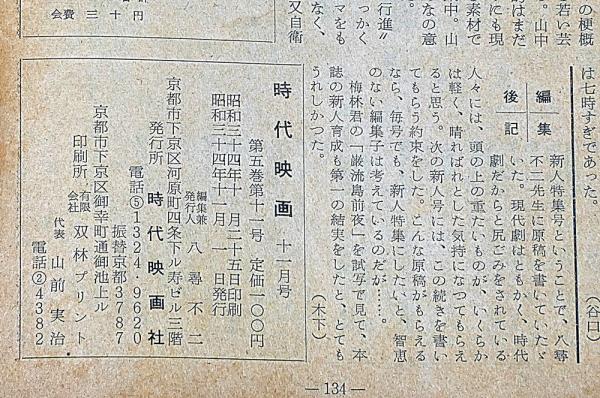 の梗概
若い芸
。山中
はまだ
にも現
素材で
中。山
なの意
行進〃
っかく
マをも
なく、
又自衛
会費 三十円
は七時すぎであった。
(谷口)
編集後記
新人特集号ということで、八尋
不二先生に原稿を書いていたゞ
いた。現代劇はともかく、時代
劇だからと尻ごみをされている
人々には、頭の上の重たいものが、いくらか
は軽く、晴ればれとした気持になつてもらえ
ると思う。次の新人号には、この続きを書い
てもらう約束をした。こんな原稿がもらえる
なら、毎号でも、新人特集にしたいと、智恵
のない編集子は考えているのだが……。
梅林君の「巌流島前夜」を試写で見て、本
誌の新人育成も第一の結実をしたと、とても
うれしかつた。
(木下)
時代映画 十一月号
第五巻第十一号 定価一〇〇円
昭和三十四年十月二十五日印刷
昭和三十四年十一月一日発行
編集兼
発行人 八尋不二
京都市下京区河原町四条下ル寿ビル三階
発行所 時代映画社
電話⑤1324・9620
振替京都3787
京都市下京区御幸町通御池上ル
印刷所 有限会社 双林プリント
代表 山前実治
電話②4382
—134—